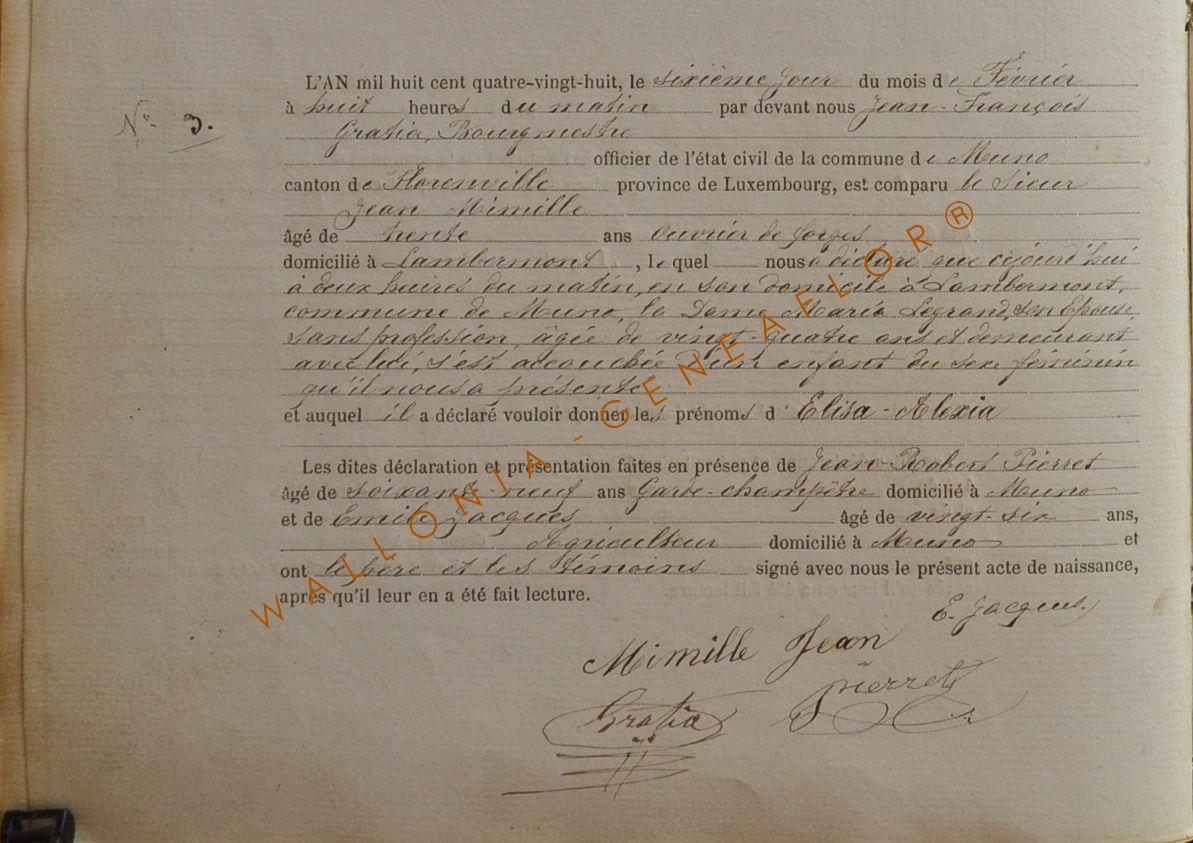 L'AN mil huit cent quatre-vingt-huit, le sixième jour du mois de Février
N° 3.
à huit heures du matin par devant nous Jean-François
Gratia, Bourgmestre
officier de l'état civil de la commune de Muno
canton de Florenville province de Luxembourg, est comparu le Sieur
Jean Mimille
âgé de trente ans ouvrier de forges
domicilié à Lambermont, lequel nous a déclaré que cejourd'hui
à deux heures du matin, en son domicile à Lambermont,
commune de Muno, la Dame Maria Legrand, son Epouse
sans profession, âgée de vingt-quatre ans et demeurant
avec lui, s'est accouchée d'un enfant du sexe féminin
qu'il nous a présenté
et auquel il a déclaré vouloir donner les prénoms d' Elisa-Alexia
Les dites déclaration et présentation faites en présence de Jean-Robert Pierret
âgé de soixante-neuf ans Garde-champêtre domicilié à Muno
et de Emile Jacques âgé de vingt-six ans,
Agriculteur domicilié à Muno et
ont le père et les témoins signé avec nous le présent acte de naissance,
après qu'il leur en a été fait lecture.
E. Jacques.
Mimille Jean
Pierret
Gratia
WALLONIA-GENEAFLOR®